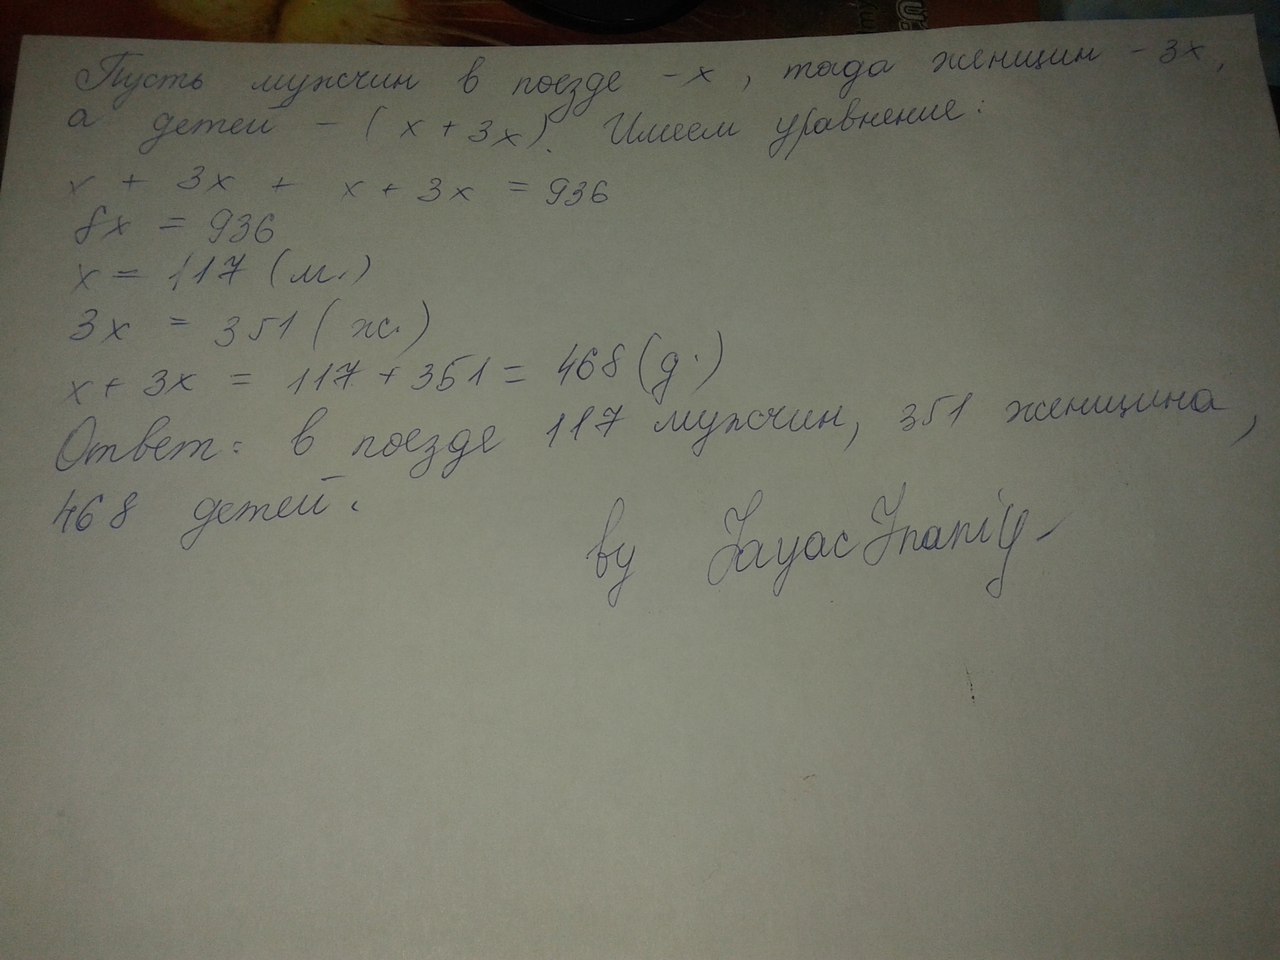 Пусть мужчин в поезде - x, тогда женщин - 3x,
а детей - (x + 3x). Имеем уравнение:
x + 3x + x + 3x = 936
8x = 936
x = 117 (м.)
3x = 351 (ж.)
x + 3x = 117 + 351 = 468 (д.)
Ответ: в поезде 117 мужчин, 351 женщина,
468 детей.
by